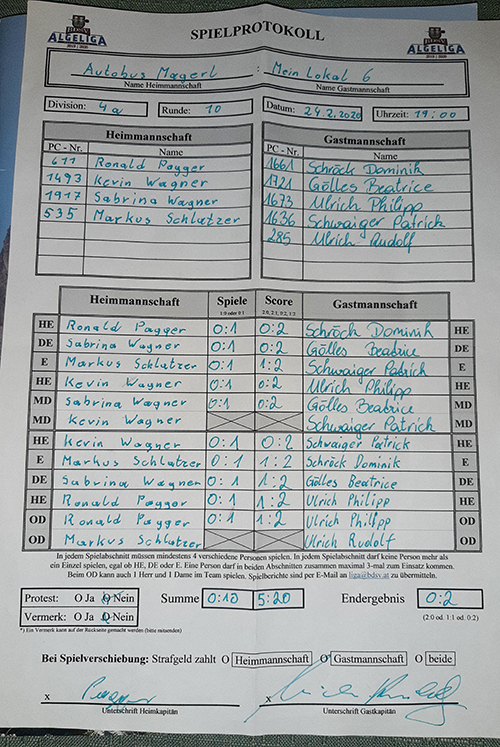 ALGELIGA
2019 | 2020
SPIELPROTOKOLL
ALGELIGA
2019 | 2020
Autobus Magerl : Mein Lokal 6
Name Heimmannschaft Name Gastmannschaft
Division: 4a Runde: 10 Datum: 24.2.2020 Uhrzeit: 19:00
Heimmannschaft Gastmannschaft
PC - Nr. Name PC - Nr. Name
611 Ronald Pagger 1661 Schröck Dominik
1493 Kevin Wagner 1721 Gölles Beatrice
1917 Sabrina Wagner 1673 Ulrich Philipp
535 Markus Schlatzer 1636 Schwaiger Patrick
285 Ulrich Rudolf
Heimmannschaft Spiele Score Gastmannschaft
1:0 oder 0:1 2:0, 2:1, 0:2, 1:2
HE Ronald Pagger 0:1 0:2 Schröck Dominik HE
DE Sabrina Wagner 0:1 0:2 Gölles Beatrice DE
E Markus Schlatzer 0:1 1:2 Schwaiger Patrick E
HE Kevin Wagner 0:1 0:2 Ulrich Philipp HE
MD Sabrina Wagner 0:1 0:2 Gölles Beatrice MD
MD Kevin Wagner Schwaiger Patrick MD
HE Kevin Wagner 0:1 0:2 Schwaiger Patrick HE
E Markus Schlatzer 0:1 1:2 Schröck Dominik E
DE Sabrina Wagner 0:1 1:2 Gölles Beatrice DE
HE Ronald Pagger 0:1 1:2 Ulrich Philipp HE
OD Ronald Pagger 0:1 1:2 Ulrich Philipp OD
OD Markus Schlatzer Ulrich Rudolf OD
In jedem Spielabschnitt müssen mindestens 4 verschiedene Personen spielen. In jedem Spielabschnitt darf keine Person mehr als
ein Einzel spielen, egal ob HE, DE oder E. Eine Person darf in beiden Abschnitten zusammen maximal 3-mal zum Einsatz kommen.
Beim OD kann auch 1 Herr und 1 Dame im Team spielen. Spielberichte sind per E-Mail an liga@bdsv.at zu übermitteln.
Protest: O Ja O Nein Summe 0:10 5:20 Endergebnis 0:2
Vermerk: O Ja O Nein (2:0 od. 1:1 od. 0:2)
*) Ein Vermerk kann auf der Rückseite gemacht werden (bitte mitsenden)
Bei Spielverschiebung: Strafgeld zahlt O Heimmannschaft O Gastmannschaft O beide
x x
Unterschrift Heimkapitän Unterschrift Gastkapitän